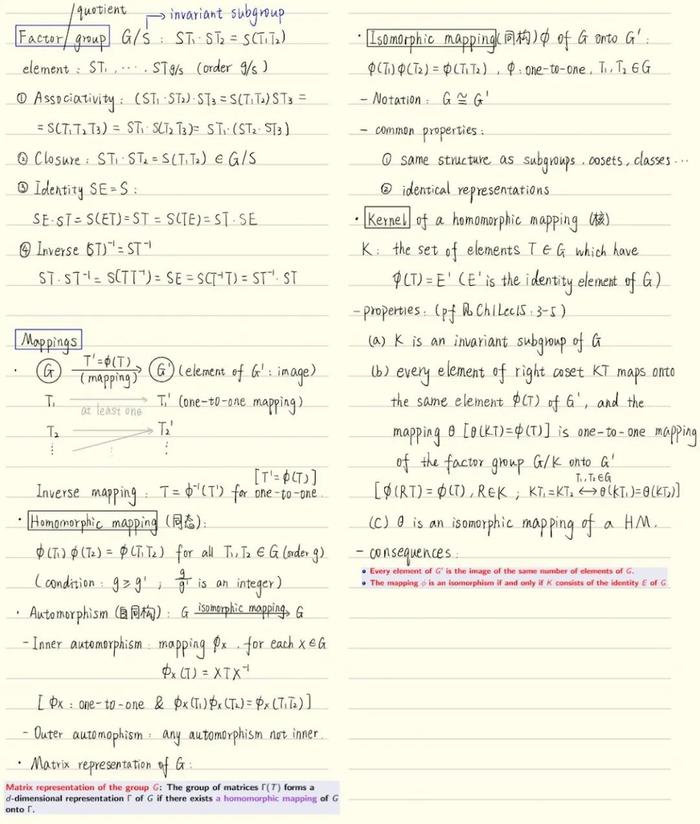 quotient
→ invariant subgroup
Factor/group G/S : ST₁·ST₂ = S(T₁T₂)
element : ST₁, ···, STg/s (order g/s)
① Associativity : (ST₁·ST₂)·ST₃ = S(T₁T₂)ST₃ =
= S(T₁T₂T₃) = ST₁·S(T₂T₃) = ST₁·(ST₂·ST₃]
② Closure : ST₁·ST₂ = S(T₁T₂) ∈ G/S
③ Identity SE=S :
SE·ST = S(ET) = ST = S(TE) = ST·SE
④ Inverse (ST)⁻¹ = ST⁻¹
ST·ST⁻¹ = S(TT⁻¹) = SE = S(T⁻¹T) = ST⁻¹·ST
Mappings
· G T'=φ(T) (mapping) → G' (element of G' : image)
T₁ → T₁' (one-to-one mapping)
at least one
T₂ → T₂'
⋮ ⋮
[T'=φ(T)]
Inverse mapping : T = φ⁻¹(T') for one-to-one
· Homomorphic mapping (同态) :
φ(T₁) φ(T₂) = φ(T₁T₂) for all T₁,T₂ ∈ G (order g)
(condition : g ≥ g' ; g/g' is an integer)
· Automorphism (自同构) : G isomorphic mapping → G
- Inner automorphism : mapping φx, for each X ∈ G
φx(T) = XTX⁻¹
[ φx : one-to-one & φx(T₁)φx(T₂) = φx(T₁T₂) ]
- Outer automophism : any automorphism not inner.
· Matrix representation of G :
Matrix representation of the group G: The group of matrices Γ(T) forms a
d-dimensional representation Γ of G if there exists a homomorphic mapping of G
onto Γ.
· Isomorphic mapping (同构) φ of G onto G' :
φ(T₁)φ(T₂) = φ(T₁T₂), φ : one-to-one, T₁,T₂ ∈ G
- Notation : G ≅ G'
- common properties :
① same structure as subgroups, cosets, classes ···
② identical representations
· Kernel of a homomorphic mapping (核)
K : the set of elements T ∈ G which have
φ(T) = E' (E' is the identity element of G)
- properties : (pf Ch1Lec15 : 3-5)
(a) K is an invariant subgroup of G
(b) every element of right coset KT maps onto
the same element φ(T) of G', and the
mapping θ [θ(KT)=φ(T)] is one-to-one mapping
of the factor group G/K onto G'
T₁,T₂∈G
[φ(RT) = φ(T), R∈K ; KT₁=KT₂ ↔ θ(KT₁)=θ(KT₂)]
(C) θ is an isomorphic mapping of a HM.
- consequences :
• Every element of G' is the image of the same number of elements of G.
• The mapping φ is an isomorphism if and only if K consists of the identity E of G.